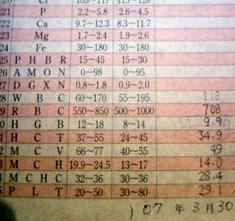 21 P 2.2~5.8 2.6~4.5
22 Ca 9.7~12.3 8.3~11.7
23 Mg 1.7~2.4 1.9~2.6
24 Fe 30~180 30~180
25 P H B R 15~45 15~30
26 A M O N 0~98 0~95
27 D G X N 0.8~1.8 0.9~2.0
28 W B C 60~170 55~195 118
29 R B C 550~850 500~1000 708
30 H G B 12~18 8~14 9.9
31 H C T 37~55 24~45 34.9
M C V 66~77 40~55 49
M C H 19.9~24.5 13~17 14.0
M C H C 32~36 30~36 28.4
P L T 20~50 30~80 29.1
) 07 年 3月30